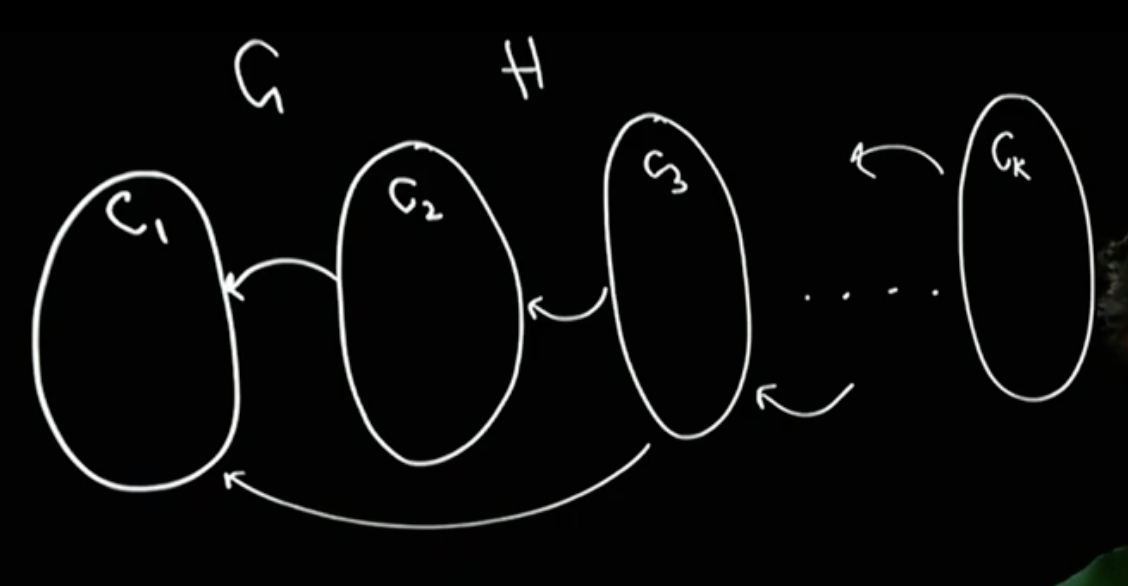 G H
C1 C2 C3 .... Ck